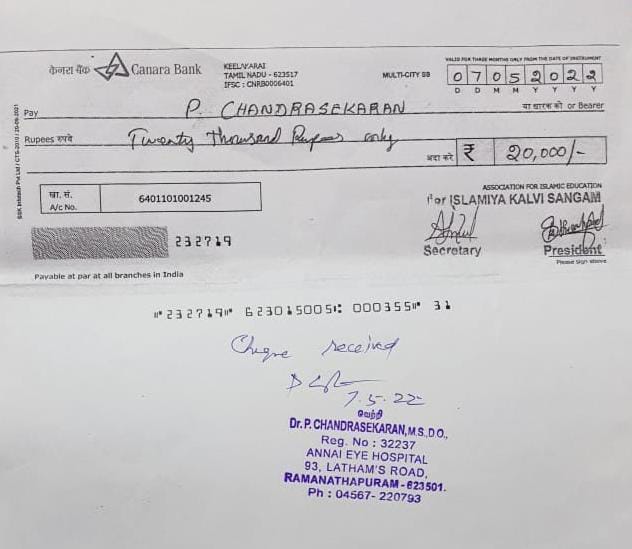 केनरा बैंक Canara Bank
KEELAKARAI
TAMIL NADU - 623517
IFSC : CNRB0006401
MULTI-CITY SB
VALID FOR THREE MONTHS ONLY FROM THE DATE OF INSTRUMENT
0 7 0 5 2 0 2 2
D D M M Y Y Y Y
Pay P. CHANDRASEKARAN या धारक को or Bearer
Rupees रुपये Twenty Thousand Rupees only
अदा करें ₹ 20,000/-
खा. सं.
A/c No. 6401101001245
ASSOCIATION FOR ISLAMIC EDUCATION
For ISLAMIYA KALVI SANGAM
232719
Secretary President
Please sign above
Payable at par at all branches in India
⑈232719⑈ 623015005⑆ 000355⑈ 31
Cheque received
7.5.22
வெற்றி
Dr. P. CHANDRASEKARAN, M.S., D.O.,
Reg. No : 32237
ANNAI EYE HOSPITAL
93, LATHAM'S ROAD,
RAMANATHAPURAM - 623501.
Ph : 04567- 220793